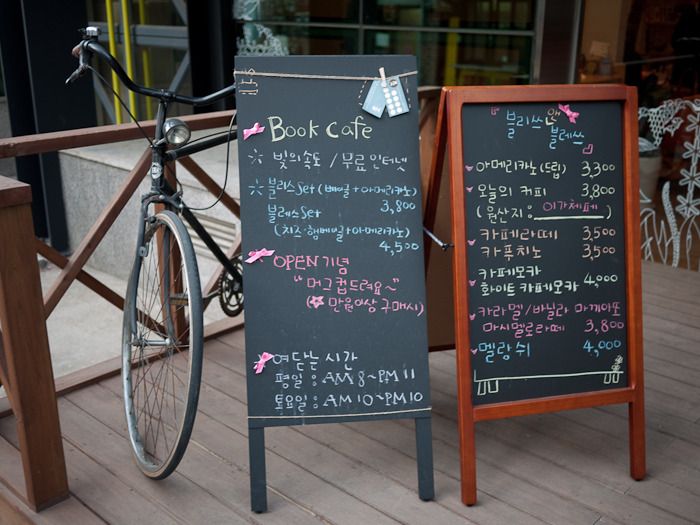 Book Cafe
빛의속도 / 무료 인터넷
블리스Set (베이글+아메리카노)
3,800
블레스Set
(치즈·햄베이글+아메리카노)
4,500
OPEN기념
"머그컵드려요~"
(만원이상 구매시)
여닫는 시간
평일 : AM 8~PM 11
토요일 : AM 10~PM 10
블리쓰 앤
블레쓰
아메리카노 (드립) 3,300
오늘의 커피 3,800
(원산지: 이가체페)
카페라떼 3,500
카푸치노 3,500
카페모카
화이트 카페모카 4,000
카라멜/바닐라 마끼아또
마시멜로라떼 3,800
멜랑쉬 4,000